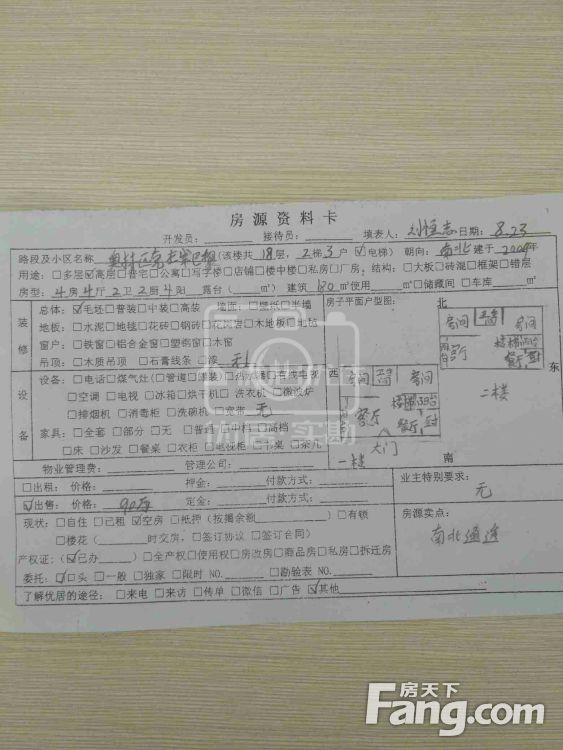 房源资料卡
开发员： 接待员： 填表人： 日期：8.23
路段及小区名称 (该楼共 18 层，2 梯 3 户 ☑电梯) 朝向：南北 建于 2004年
用途：□多层☑高层□普宅□公寓□写字楼□店铺□楼中楼□私房□厂房，结构：□大板□砖混□框架□错层
房型：4 房 4 厅 2 卫 2 厨 4 阳 露台（ ）m² 建筑 180 m²使用 m²□储藏间 □车库 m²
装修
总体：☑毛坯□普装□中装□高装 墙面：□壁纸□半墙 房子平面户型图： 北
地板：□水泥□地毯□花砖□钢砖□花岗岩□木地板□地毯
窗户：□铁窗□铝合金窗□塑钢窗□木窗
吊顶：□木质吊顶 □石膏线条 □漆
房间 房间
客厅 楼梯 餐厅
东
二楼
设备
设备：□电话□煤气灶(□管道□罐装)□热水器□有线电视 西
□空调 □电视 □冰箱□烘干机□洗衣机□微波炉
□排烟机 □消毒柜 □洗碗机 □宽带 无
家具：□全套 □部分 □无 □普通□中档□高档
□床 □沙发 □餐桌 □衣柜 □电视柜 □书桌 □茶几
房间 房间
客厅 楼梯 餐厅
大门
一楼 南
物业管理费： 管理公司：
□出租：价格： 押金： 付款方式：
☑出售：价格：90万 定金： 付款方式：
业主特别要求：
无
现状：□自住 □已租 ☑空房 □抵押（按揭余额 ）□有锁
□楼花（ 时交房，□签订协议 □签订合同）
房源卖点：
南北通透
产权证：(☑已办 ) □全产权□使用权□房改房□商品房□私房□拆迁房
委托：☑口头 □一般 □独家 □限时 NO. □勘验表 NO.
了解优居的途径：□来电 □来访 □传单 □微信 □广告 ☑其他
房天下
Fang.com